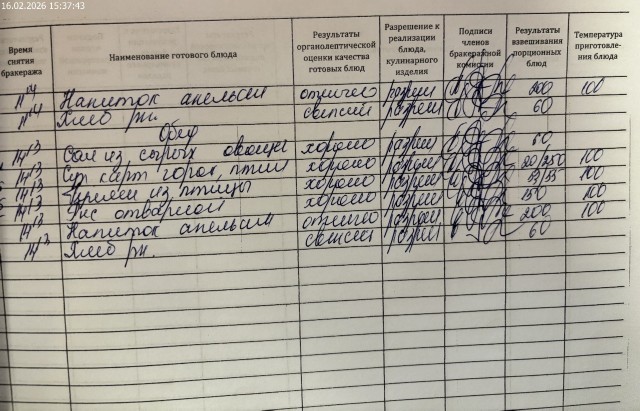 16.02.2026 15:37:43
Время снятия бракеража | Наименование готового блюда | Результаты органолептической оценки качества готовых блюд | Разрешение к реализации блюда, кулинарного изделия | Подписи членов бракеражной комиссии | Результаты взвешивания порционных блюд | Температура приготовле- ния блюда
11 14 Напиток апельсин отлично разреш 200 100
11 14 Хлеб рж. свежий разреш 60
Обед
14 13 Сал из сырых овощей хорошо разреш 60
14 13 Суп карт горох, птиц хорошо разреш 20/250 100
14 13 из птицы хорошо разреш 100
14 13 Рис отварной хорошо разреш 150 100
14 13 Напиток апельсин отлично разреш 200 100
14 13 Хлеб рж. свежий разреш 60